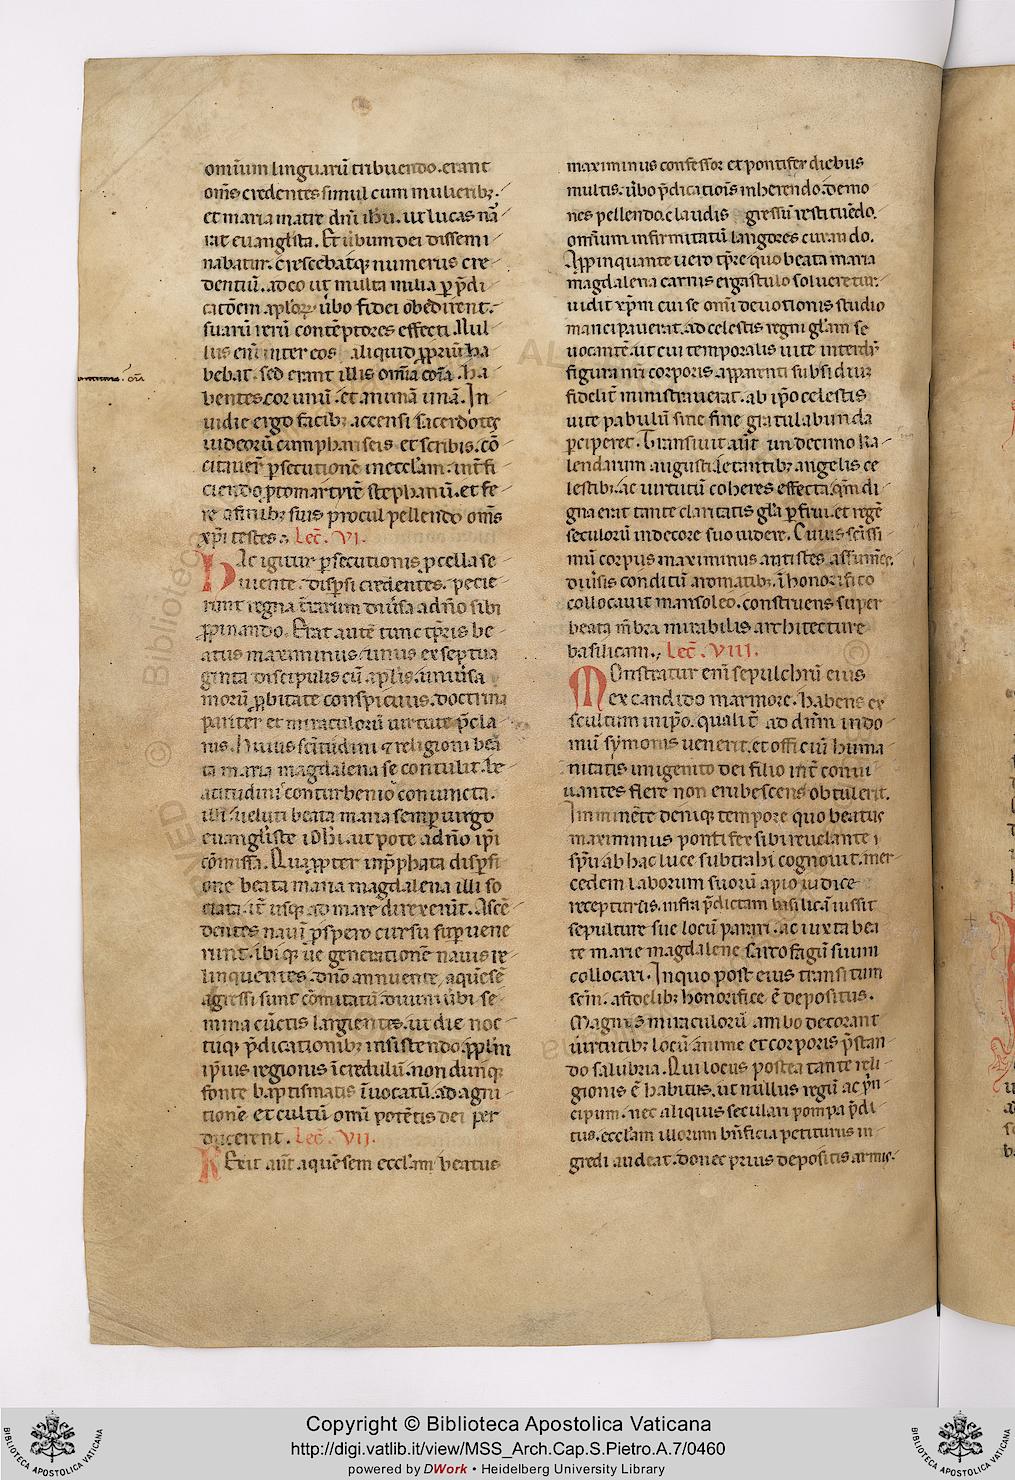 omīum linguarū tribuendo. erant
om̄s credentes simul cum mulieribꝫ.
et maria matre dn̄i ihū. ut lucas nā
rat euangl̄ista. Et ūbum dei dissemi
nabatur. crescebatqꝫ numerus cre
dentiū. adeo ut multa milia ꝑ p̄di
catōem apl̄oꝝ ūbo fidei obedirent.
suarū rerū contēptores effecti. Nul
lus eni inter eos aliquid ꝓpriū ha
bebat. sed erant illis om̄ia cōia. ha
bentes cor unū. et animā unā. In
uidie ergo facibꝫ accensi sacerdotes
iudeorū cum phariseis et scribis. cō
citauer̄ ꝑsecutionē in eccl̄am. int̄fi
ciendo ꝓtomartyrē stephanū. et fe
re a finibꝫ suis procul pellendo om̄s
xp̄i testes. Lec̄. VI.
HAc igitur ꝑsecutionis ꝓcella se
uiente. disp̄si credentes. pecie
runt regna t̄rarum diūsa a dn̄o sibi
ꝓpinando. Erat autē tunc tp̄ris be
atus maximinus. unus ex septua
ginta discipulis cū apl̄is. uniūsa
morū ꝓbitate conspicuus. doctrina
pariter et miraculorū uirtute p̄cla
rus. Huius sc̄itudini ⁊ religioni bea
ta maria magdalena se contulit. be
atitudini conturbenio coniuncta.
illi. ueluti beata maria semꝑ uirgo
euangl̄iste ioh̄i. ut pote a dn̄o ip̄i
cōmissa. Quaꝓpter in p̄phata disp̄si
one beata maria magdalena illi so
ciata. it̄ usqꝫ ad mare direxerūt. Ascē
dentes nauī ꝓspero cursu suꝑuene
runt. ibiqꝫ ue generationē nauis re
linquentes. dn̄o annuente, aquēsē
agressi sunt cōmitatū. diuini ūbi se
mina cūctis largientes. ut die noc
tuqꝫ p̄dicationibꝫ insistendo. ꝓpl̄m
ip̄ius regionis īcredulū. nondūqꝫ
fonte baptismatis īuocatū. ad agni
tionē et cultū om̄i potētis dei per
ducerent. Lec̄. VII.
RExit aūt aquēsem eccl̄am beatus
maximinus confessor et pontifex diebus
multis. ūbo p̄dicatiōis inherendo. demo
nes pellendo. claudis gressū restituēdo.
omīum infirmitatū langores curando.
Appinquante uero tp̄re quo beata maria
magdalena carnis ergastulo solueretur.
uidit xp̄m cui se om̄i deuotionis studio
mancipauerat. ad celestis regni gl̄am se
uocantē. ut cui temporalis uite interdū
figura nr̄i corporis apparenti subsidiū
fidelit̄ ministrauerat. ab ip̄o celestis
uite pabulū sine fine gratulabunda
ꝑciperet. Transiuit aūt undecimo ka
lendarum augusti. letantibꝫ angelis ce
lestibꝫ. ac uirtutū coheres effecta. qm̄ di
gna erat tante claritatis gl̄ia ꝑfrui. et regē
seculorū in decore suo uidere. Cuius sc̄issi
mū corpus maximinus antistes assūmēs.
diūsis conditū aromatibꝫ. ī honorifico
collocauit mausoleo. construens super
beata m̄bra mirabilis architecture
basilicam. Lec̄. VIII.
MOnstratur eni sepulchrū eius
ex candido marmore. habens ex
scultum in ip̄o. qualit̄ ad dn̄m in do
mū symonis uenerit. et officiū huma
nitatis unigenito dei filio int̄ conui
uantes flere non erubescens obtulerit.
Imminēte deniqꝫ tempore quo beatus
maximinus pontifex sibi reuelante
sp̄u ab hac luce subtrahi cognouit. mer
cedem laborum suorū a pio iudice
recepturus. infra p̄dictam basilicā iussit
sepulture sue locū parari. ac iuxta bea
te marie magdalene sarcofagū suum
collocari. In quo post eius transitum
sc̄m. a fidelibꝫ honorifice ē depositus.
Magnis miraculorū ambo decorant
uirtutibꝫ locū anime et corporis p̄stan
do salubria. Qui locus postea tante reli
gionis ē habitus. ut nullus regū ac p̄n
cipum. nec aliquis seculari pompa p̄di
tus. eccl̄am illorum bn̄ficia petiturus in
gredi audeat. donec prius depositis armis.
Copyright © Biblioteca Apostolica Vaticana
http://digi.vatlib.it/view/MSS_Arch.Cap.S.Pietro.A.7/0460
powered by DWork • Heidelberg University Library
BIBLIOTECA APOSTOLICA VATICANA
BIBLIOTECA APOSTOLICA VATICANA